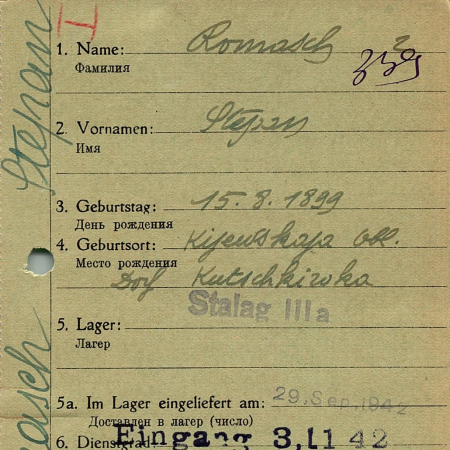 1. Name: Romasch
Фамилия
2. Vornamen: Stepan
Имя
3. Geburtstag: 15. 8. 1899
День рождения
4. Geburtsort: Kijewskaja obl.
Место рождения Dorf Kutschkiwka
Stalag IIIa
5. Lager:
Лагерь
5a. Im Lager eingeliefert am: 29. Sep. 1942
Доставлен в лагерь (число)
6. Dienstgrad: Eingang 3, 11 42
Stepan